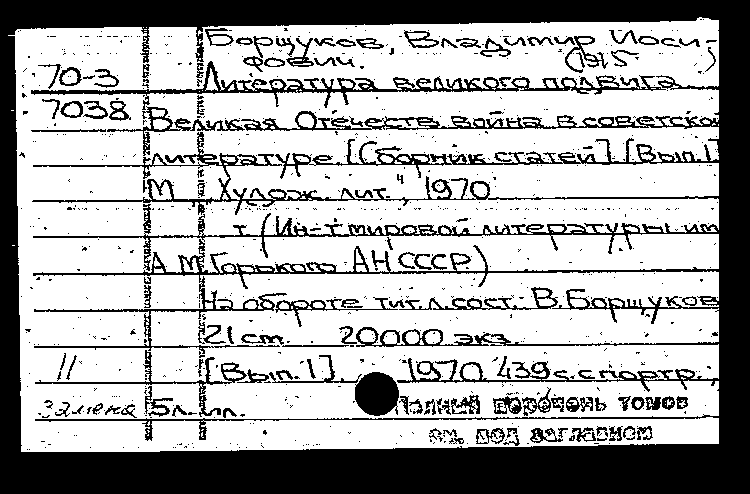 Борщуков, Владимир Иоси-
фович. (1915- )
70-3 Литература великого подвига
7038 Великая Отечеств. война в советской
литературе. [Сборник статей] [Вып.1]
М., „Худож. лит.", 1970
т. (Ин-т мировой литературы им
А.М.Горького АН СССР)
На обороте тит.л. сост.: В.Борщуков
21 cm. 20000 экз.
11 [Вып. 1]. 1970. 439 с. с портр.;
замена 5 л. ил. Полный перечень томов
см. под заглавием